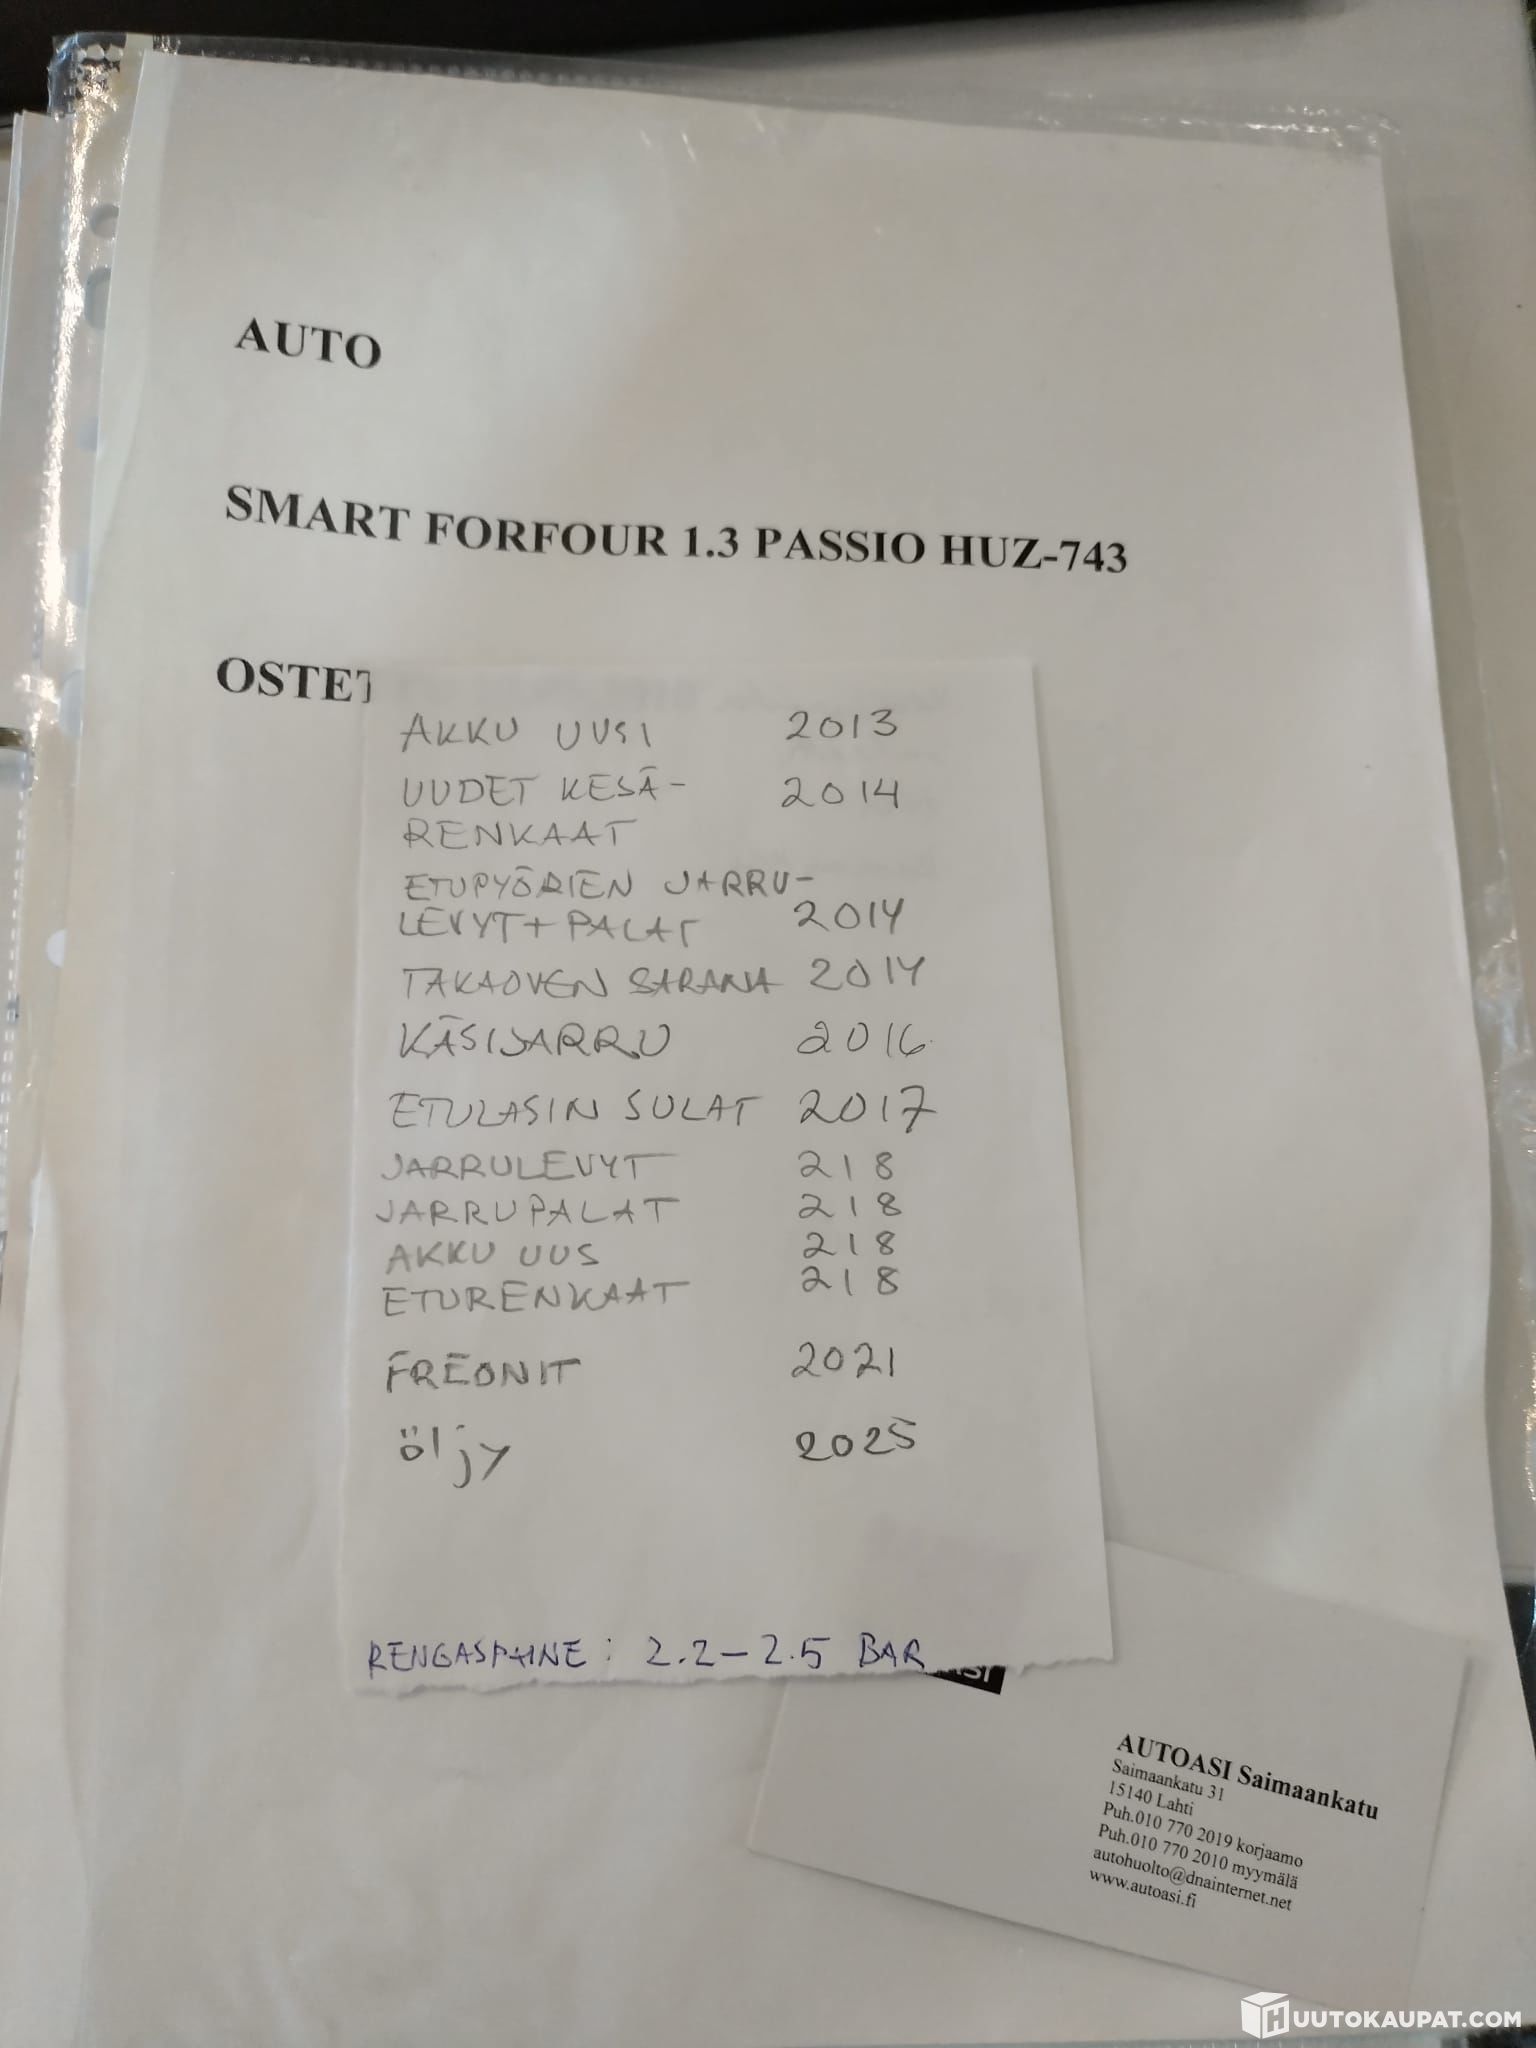 AUTO
SMART FORFOUR 1.3 PASSIO HUZ-743
OSTET
AKKU UUSI 2013
UUDET KESÄ- 2014
RENKAAT
ETUPYÖRIEN JARRU-
LEVYT+PALAT 2014
TAKAOVEN SARANA 2014
KÄSIJARRU 2016
ETULASIN SULAT 2017
JARRULEVYT 218
JARRUPALAT 218
AKKU UUS 218
ETURENKAAT 218
FREONIT 2021
öljy 2025
RENGASPAINE: 2.2-2.5 BAR
AUTOASI Saimaankatu
Saimaankatu 31
15140 Lahti
Puh.010 770 2019 korjaamo
Puh.010 770 2010 myymälä
autohuolto@dnainternet.net
www.autoasi.fi
HUUTOKAUPAT.COM